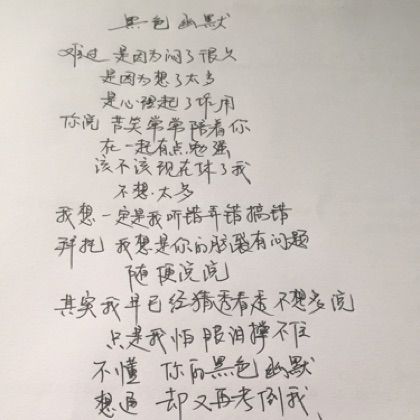 黑色幽默
难过 是因为闷了很久
是因为想了太多
是心理起了作用
你说 苦笑常常陪着你
在一起有点勉强
该不该现在休了我
不想太多
我想一定是我听错弄错搞错
拜托 我想是你的脑袋有问题
随便说说
其实我早已经猜透看透不想多说
只是我怕眼泪撑不住
不懂 你的黑色幽默
想通 却又再考倒我